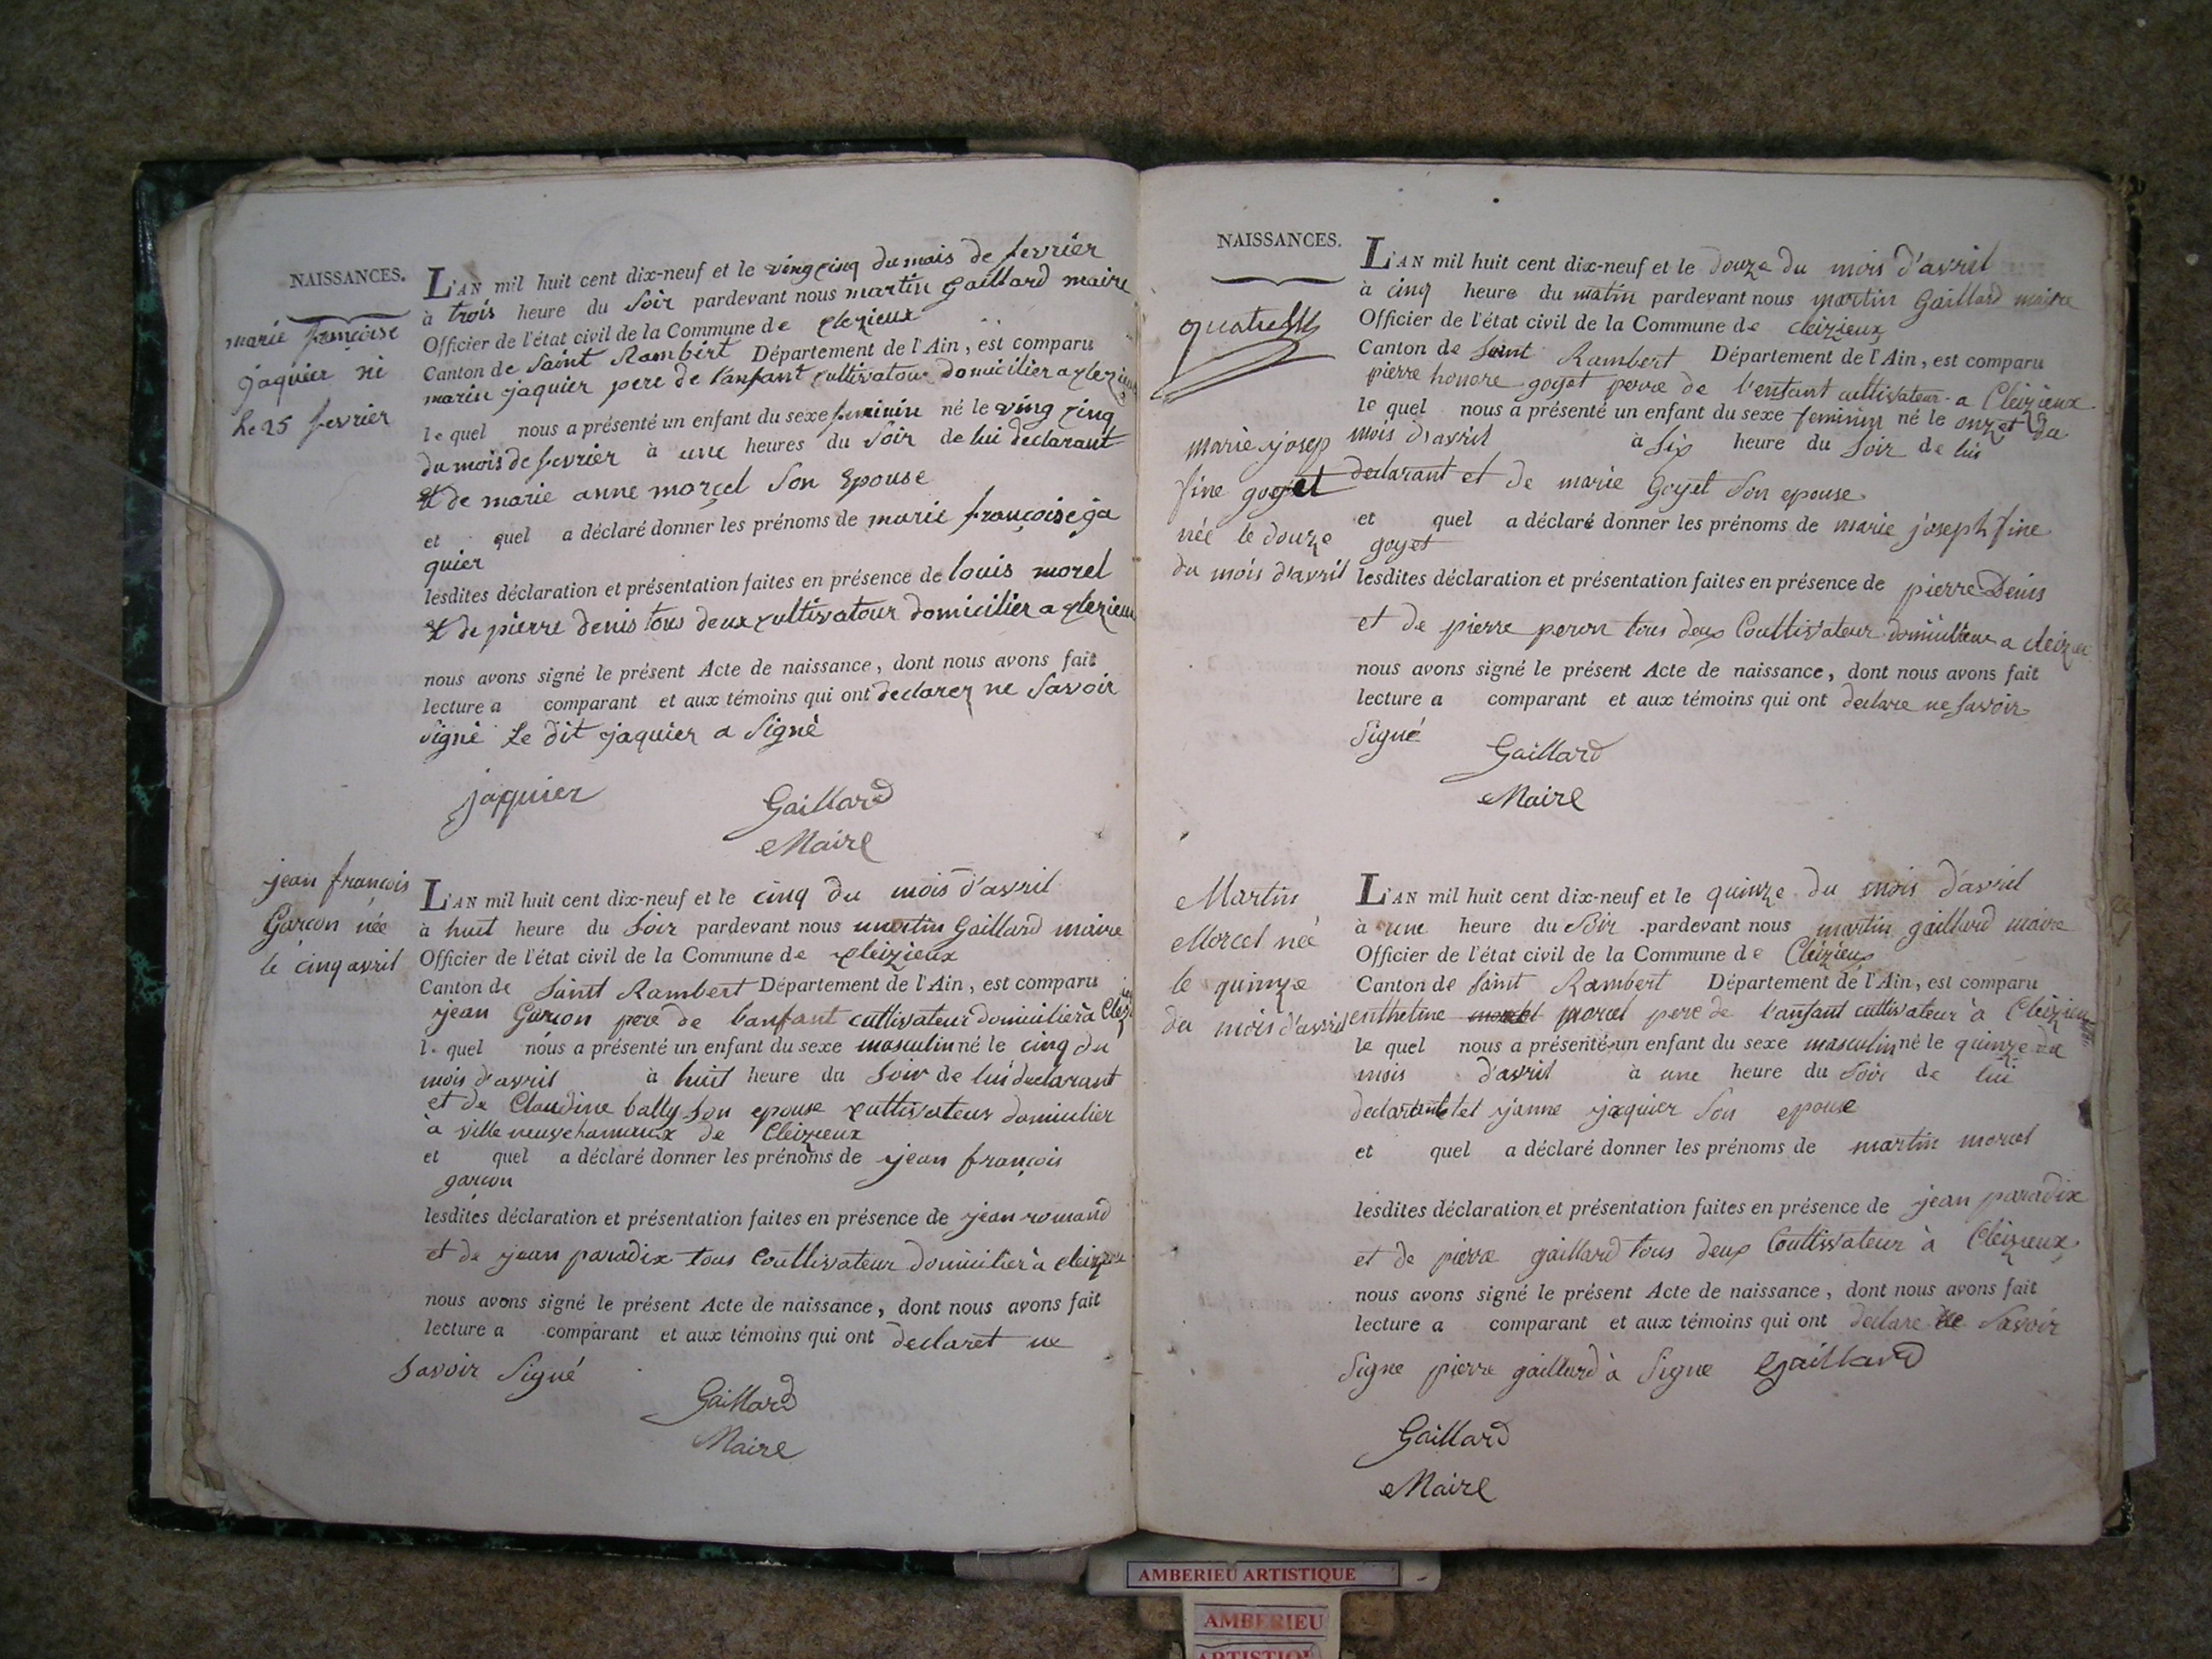 NAISSANCES.
marie françoise
jaquier né
le 25 fevrier
L'AN mil huit cent dix-neuf et le ving cinq du mois de fevrier
à trois heure du soir pardevant nous martin gaillard maire
Officier de l'état civil de la Commune de clezieux
Canton de Saint Rambert Département de l'Ain, est comparu
marin jaquier pere de l'anfant cultivatour domicilier a clezieux
le quel nous a présenté un enfant du sexe feminin né le ving cinq
du mois de fevrier à une heures du soir de lui declarant
et de marie anne morçel son epouse
et quel a déclaré donner les prénoms de marie françoise ja
quier
lesdites déclaration et présentation faites en présence de louis morel
et de pierre denis tous deux cultivatour domicilier a clezieux
nous avons signé le présent Acte de naissance, dont nous avons fait
lecture a comparant et aux témoins qui ont declarer ne savoir
signé le dit jaquier a signé
jaquier Gaillard
Maire
jean françois
Garcon née
le cinq avril
L'AN mil huit cent dix-neuf et le cinq du mois d'avril
à huit heure du soir pardevant nous martin Gaillard maire
Officier de l'état civil de la Commune de cleizieux
Canton de Saint Rambert Département de l'Ain, est comparu
jean Garcon pere de l'anfant cultivateur domicilier à
le quel nous a présenté un enfant du sexe masculin né le cinq du
mois d'avril à huit heure du soir de lui declarant
et de Claudine bally son epouse cultivateur domicilier
à de Cleizieux
et quel a déclaré donner les prénoms de jean françois
garcon
lesdites déclaration et présentation faites en présence de jean romand
et de jean paradix tous Coultivateur domicilier à cleizieux
nous avons signé le présent Acte de naissance, dont nous avons fait
lecture a comparant et aux témoins qui ont declaret ne
savoir signé
Gaillard
Maire
NAISSANCES.
marie josep
fine goyet
née le douze
du mois d'avril
L'AN mil huit cent dix-neuf et le douze du mois d'avril
à cinq heure du matin pardevant nous martin Gaillard maire
Officier de l'état civil de la Commune de cleizieux
Canton de Saint Rambert Département de l'Ain, est comparu
pierre honore goyet perre de l'entant cultivateur a Cleizieux
le quel nous a présenté un enfant du sexe feminin né le onzet du
mois d'avril à six heure du soir de lui
declarant et de marie Goyet son epouse
et quel a déclaré donner les prénoms de marie joseph fine
goyet
lesdites déclaration et présentation faites en présence de pierre Denis
et de pierre peron tous deux Coultivateur a
nous avons signé le présent Acte de naissance, dont nous avons fait
lecture a comparant et aux témoins qui ont declare ne savoir
signé
Gaillard
Maire
Martin
Morcel née
le quinze
du mois d'avril
L'AN mil huit cent dix-neuf et le quinze du mois d'avril
à une heure du soir pardevant nous martin gaillard maire
Officier de l'état civil de la Commune de Cleizieux
Canton de Saint Rambert Département de l'Ain, est comparu
enthelme morcel pere de l'anfant cultivateur à Cleizieux
le quel nous a présenté un enfant du sexe masculin né le quinze du
mois d'avril à une heure du soir de lui
declarant et janne jaquier son epouse
et quel a déclaré donner les prénoms de martin morcel
lesdites déclaration et présentation faites en présence de jean paradix
et de pierre gaillard tous deux Coultivateur à Cleizieux
nous avons signé le présent Acte de naissance, dont nous avons fait
lecture a comparant et aux témoins qui ont declare ne savoir
signe pierre gaillard à signe Gaillard
Gaillard
Maire
AMBERIEU ARTISTIQUE
AMBERIEU
ARTISTIQUE